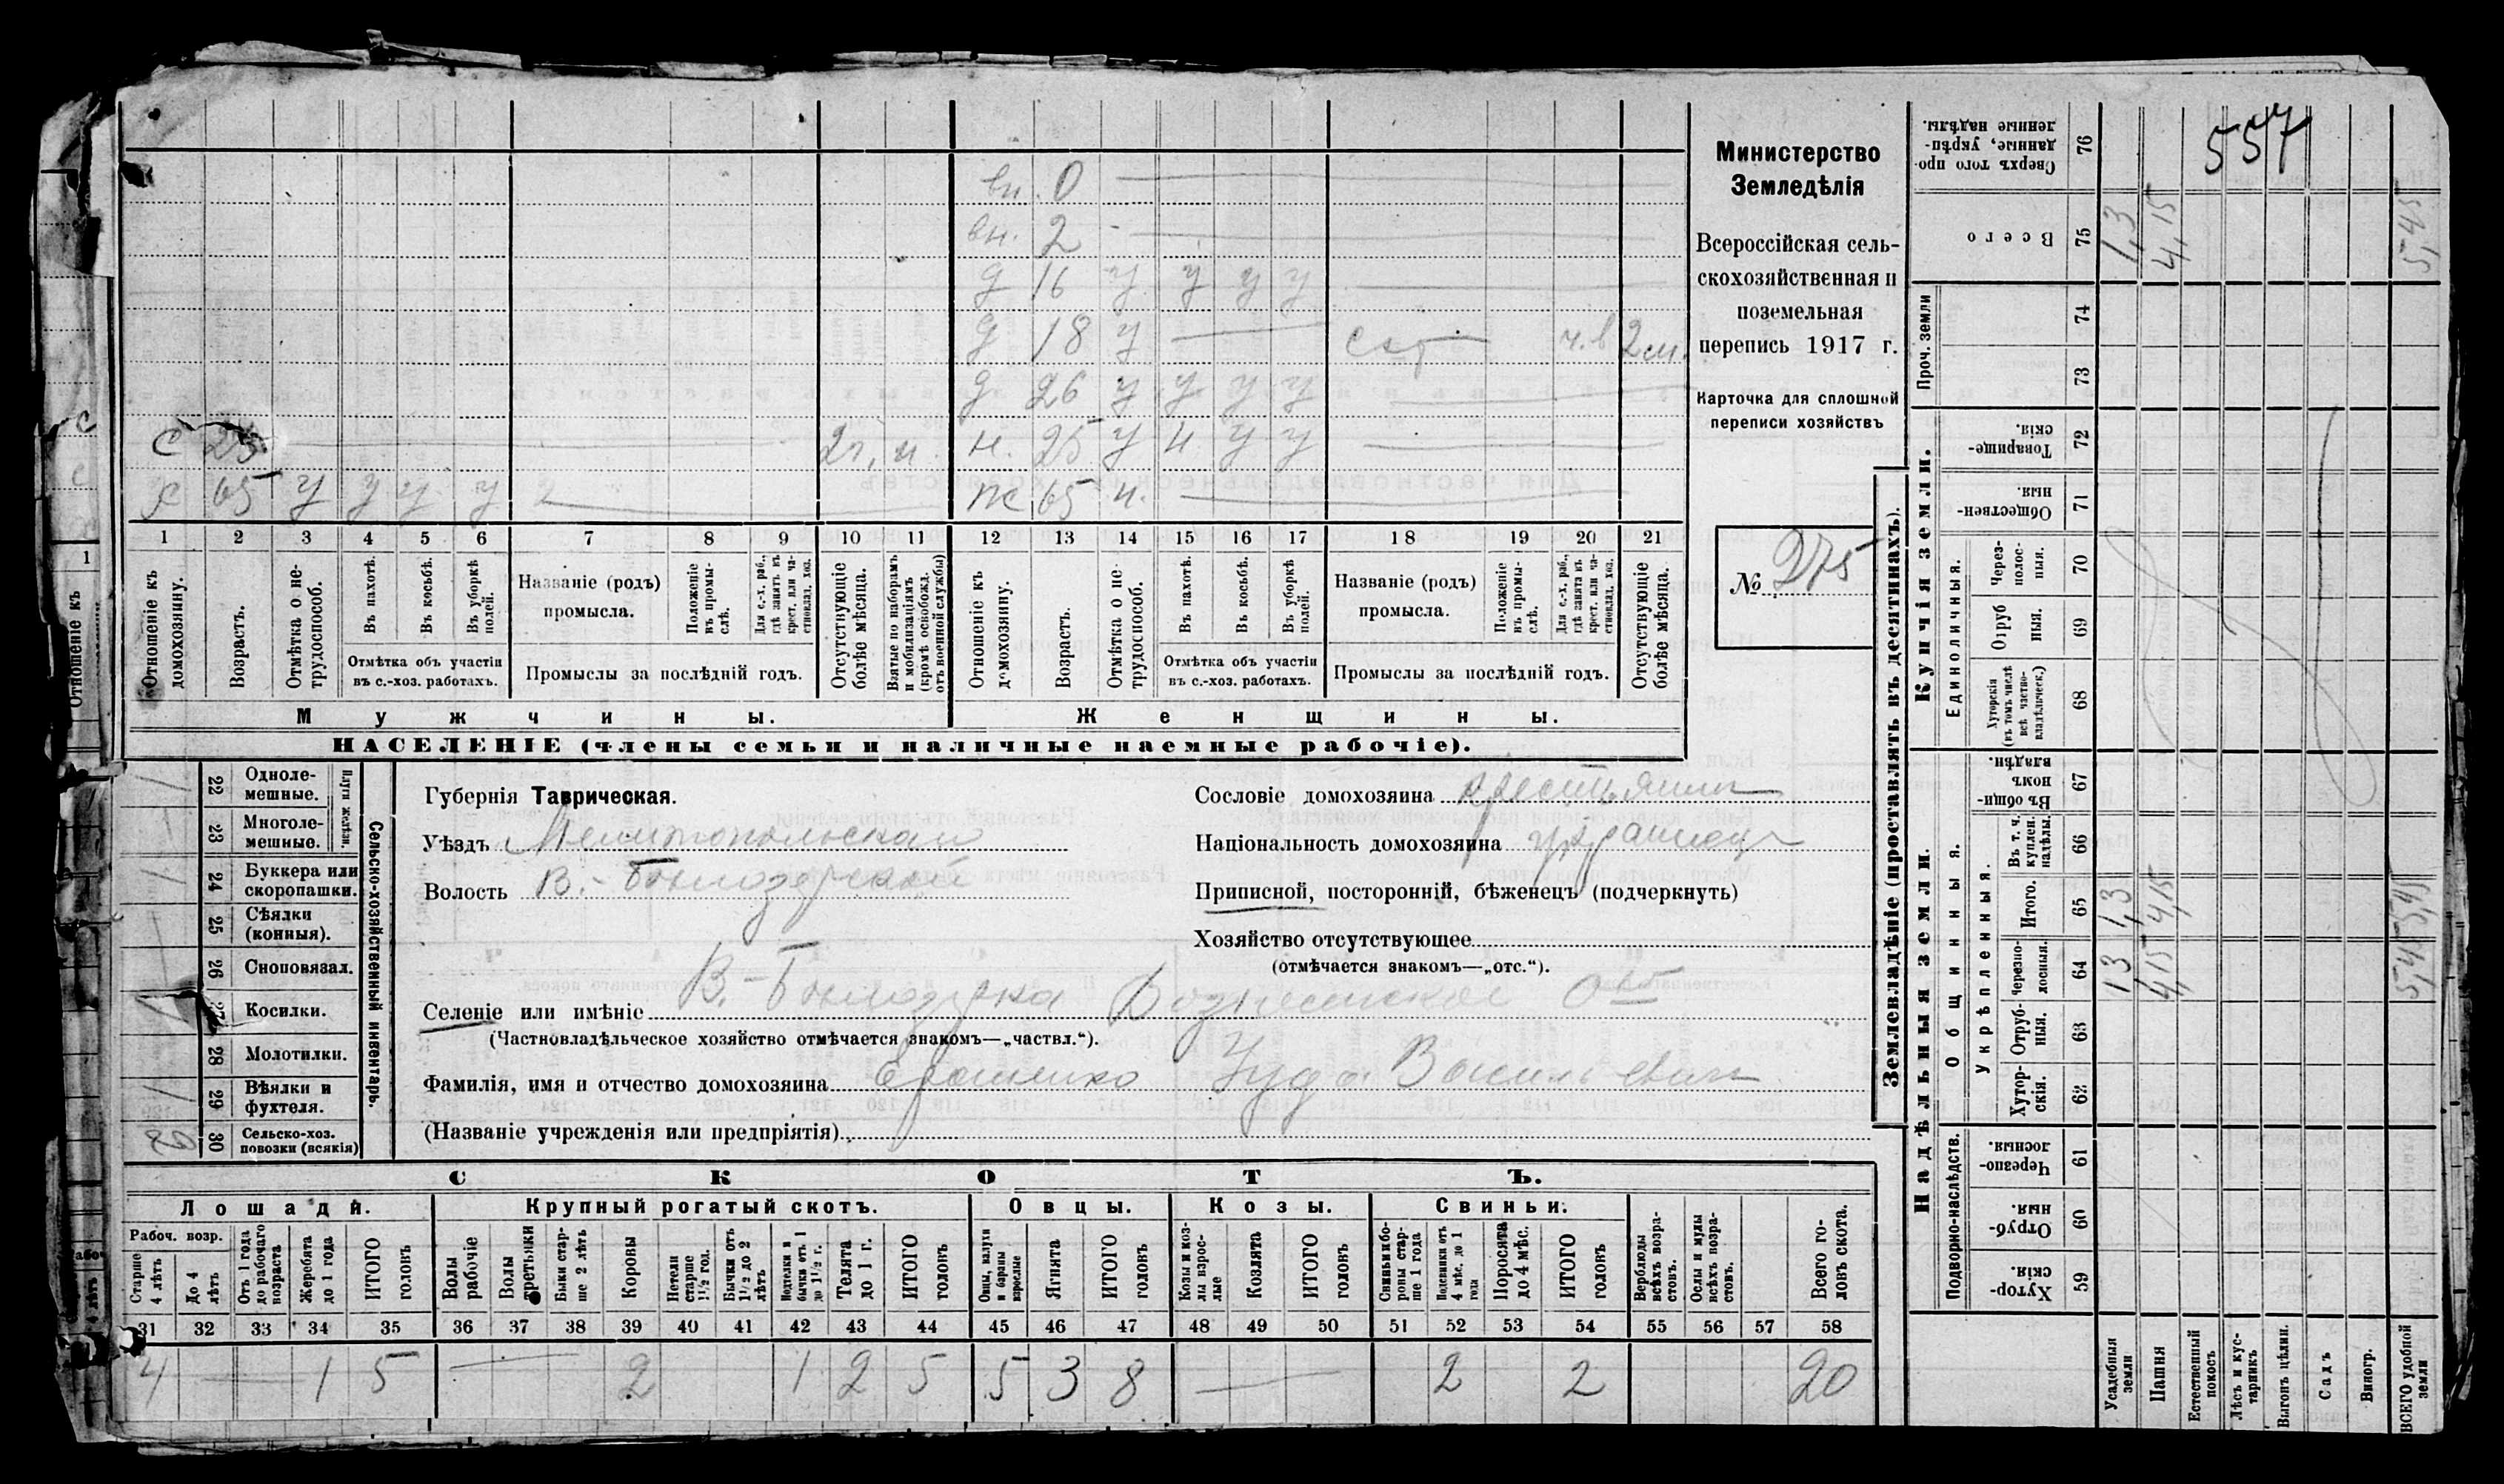 557
Министерство
Земледѣлія
Всероссійская сель-
скохозяйственная и
поземельная
перепись 1917 г.
Карточка для сплошной
переписи хозяйствъ
№ 275
вн. 0
вн. 2
д 16 у у у у
д 18 у ч. в 2 м.
д 26 у у у у
с 25 2 г. н. н. 25 у н у у
х 65 у у у у ж 65 н.
1 2 3 4 5 6 7 8 9 10 11 12 13 14 15 16 17 18 19 20 21
Отношеніе къ домохозяину.
Возрастъ.
Отмѣтка о не-
трудоспособ.
Въ пахотѣ.
Въ косьбѣ.
Въ уборкѣ
полей.
Отмѣтка объ участіи
въ с.-хоз. работахъ.
Названіе (родъ)
промысла.
Положеніе
въ промы-
слѣ.
Для с.-х. раб.,
гдѣ занятъ въ
крест. или ча-
стновлад. хоз.
Промыслы за послѣдній годъ.
Отсутствующіе
болѣе мѣсяца.
Взятые по наборамъ
и мобилизаціямъ
(кромѣ освобожд.
отъ военной службы)
Отношеніе къ
домохозяину.
Возрастъ.
Отмѣтка о не-
трудоспособ.
Въ пахотѣ.
Въ косьбѣ.
Въ уборкѣ
полей.
Отмѣтка объ участіи
въ с.-хоз. работахъ.
Названіе (родъ)
промысла.
Положеніе
въ промы-
слѣ.
Для с.-х. раб.,
гдѣ занята въ
крест. или ча-
стновлад. хоз.
Промыслы за послѣдній годъ.
Отсутствующіе
болѣе мѣсяца.
Мужчины.
Женщины.
НАСЕЛЕНІЕ (члены семьи и наличные наемные рабочіе).
Сельско-хозяйственный инвентарь.
Плуги желѣзн.
22 Одноле-
мешные.
23 Многоле-
мешные.
24 Буккера или
скоропашки.
25 Сѣялки
(конныя).
26 Сноповязал.
27 Косилки.
28 Молотилки.
29 Вѣялки и
фухтеля.
30 Сельско-хоз.
повозки (всякія)
Губернія Таврическая.
Уѣздъ Мелитопольскій
Волость В.-Бѣлозерская
Сословіе домохозяина крестьянин
Національность домохозяина украинец
Приписной, посторонній, бѣженецъ (подчеркнуть)
Хозяйство отсутствующее
(отмѣчается знакомъ—„отс.“).
Селеніе или имѣніе В.-Бѣлозерка Вознесенское Об
(Частновладѣльческое хозяйство отмѣчается знакомъ—„частвл.“).
Фамилія, имя и отчество домохозяина Ерошенко Іуда Васильевич
(Названіе учрежденія или предпріятія)
СКОТЪ.
Лошади.
Крупный рогатый скотъ.
Овцы.
Козы.
Свиньи.
Рабоч. возр.
Старше
4 лѣтъ
До 4
лѣтъ
Отъ 1 года
до рабочаго
возраста
Жеребята
до 1 года
ИТОГО
головъ
Волы
рабочіе
Волы
третьяки
Быки стар-
ше 2 лѣтъ
Коровы
Нетели
старше
1½ год.
Бычки отъ
1½ до 2
лѣтъ
Подтелки и
бычки отъ 1
до 1½ г.
Телята
до 1 г.
ИТОГО
головъ
Овцы, валухи
и бараны
взрослые
Ягнята
ИТОГО
головъ
Козы и коз-
лы взрос-
лые
Козлята
ИТОГО
головъ
Свиньи бо-
ровы стар-
ше 1 года
Подсвинки отъ
4 мѣс. до 1
года
Поросята
до 4 мѣс.
ИТОГО
головъ
Верблюды
всѣхъ возра-
стовъ.
Ослы и мулы
всѣхъ возра-
стовъ.
Всего го-
ловъ скота.
31 32 33 34 35 36 37 38 39 40 41 42 43 44 45 46 47 48 49 50 51 52 53 54 55 56 57 58
4 1 5 2 1 2 5 5 3 8 2 2 20
Землевладѣніе (проставлять въ десятинахъ).
Купчія земли.
Надѣльныя земли.
Проч. земли
Единоличныя.
Общинныя.
Укрѣпленныя.
Подворно-наслѣдств.
76 Сверхъ того про-
данные, укрѣп-
ленные надѣлы.
75 Всего 1,3 4,15 5,45
74
73
72 Товарище-
скія.
71 Обществен-
ныя.
70 Через-
полос-
ныя.
69 Отруб
ныя.
68 Хуторскія
(въ томъ числѣ
всѣ частно-
владѣльческ.)
67 Въ общин-
номъ
владѣн.
66 Въ т. ч.
куплен.
надѣлы.
65 Итого. 1,3 4,15 5,45
64 Черезпо-
лосныя. 1,3 4,15 5,45
63 Отруб-
ныя.
62 Хутор-
скія.
61 Черезпо-
лосныя.
60 Отруб-
ныя.
59 Хутор-
скія.
Усадебныя
земли
Пашня
Естественный
покосъ
Лѣсъ и кус-
тарникъ
Выгонъ цѣлин.
Садъ
Виногр.
ВСЕГО удобной
земли